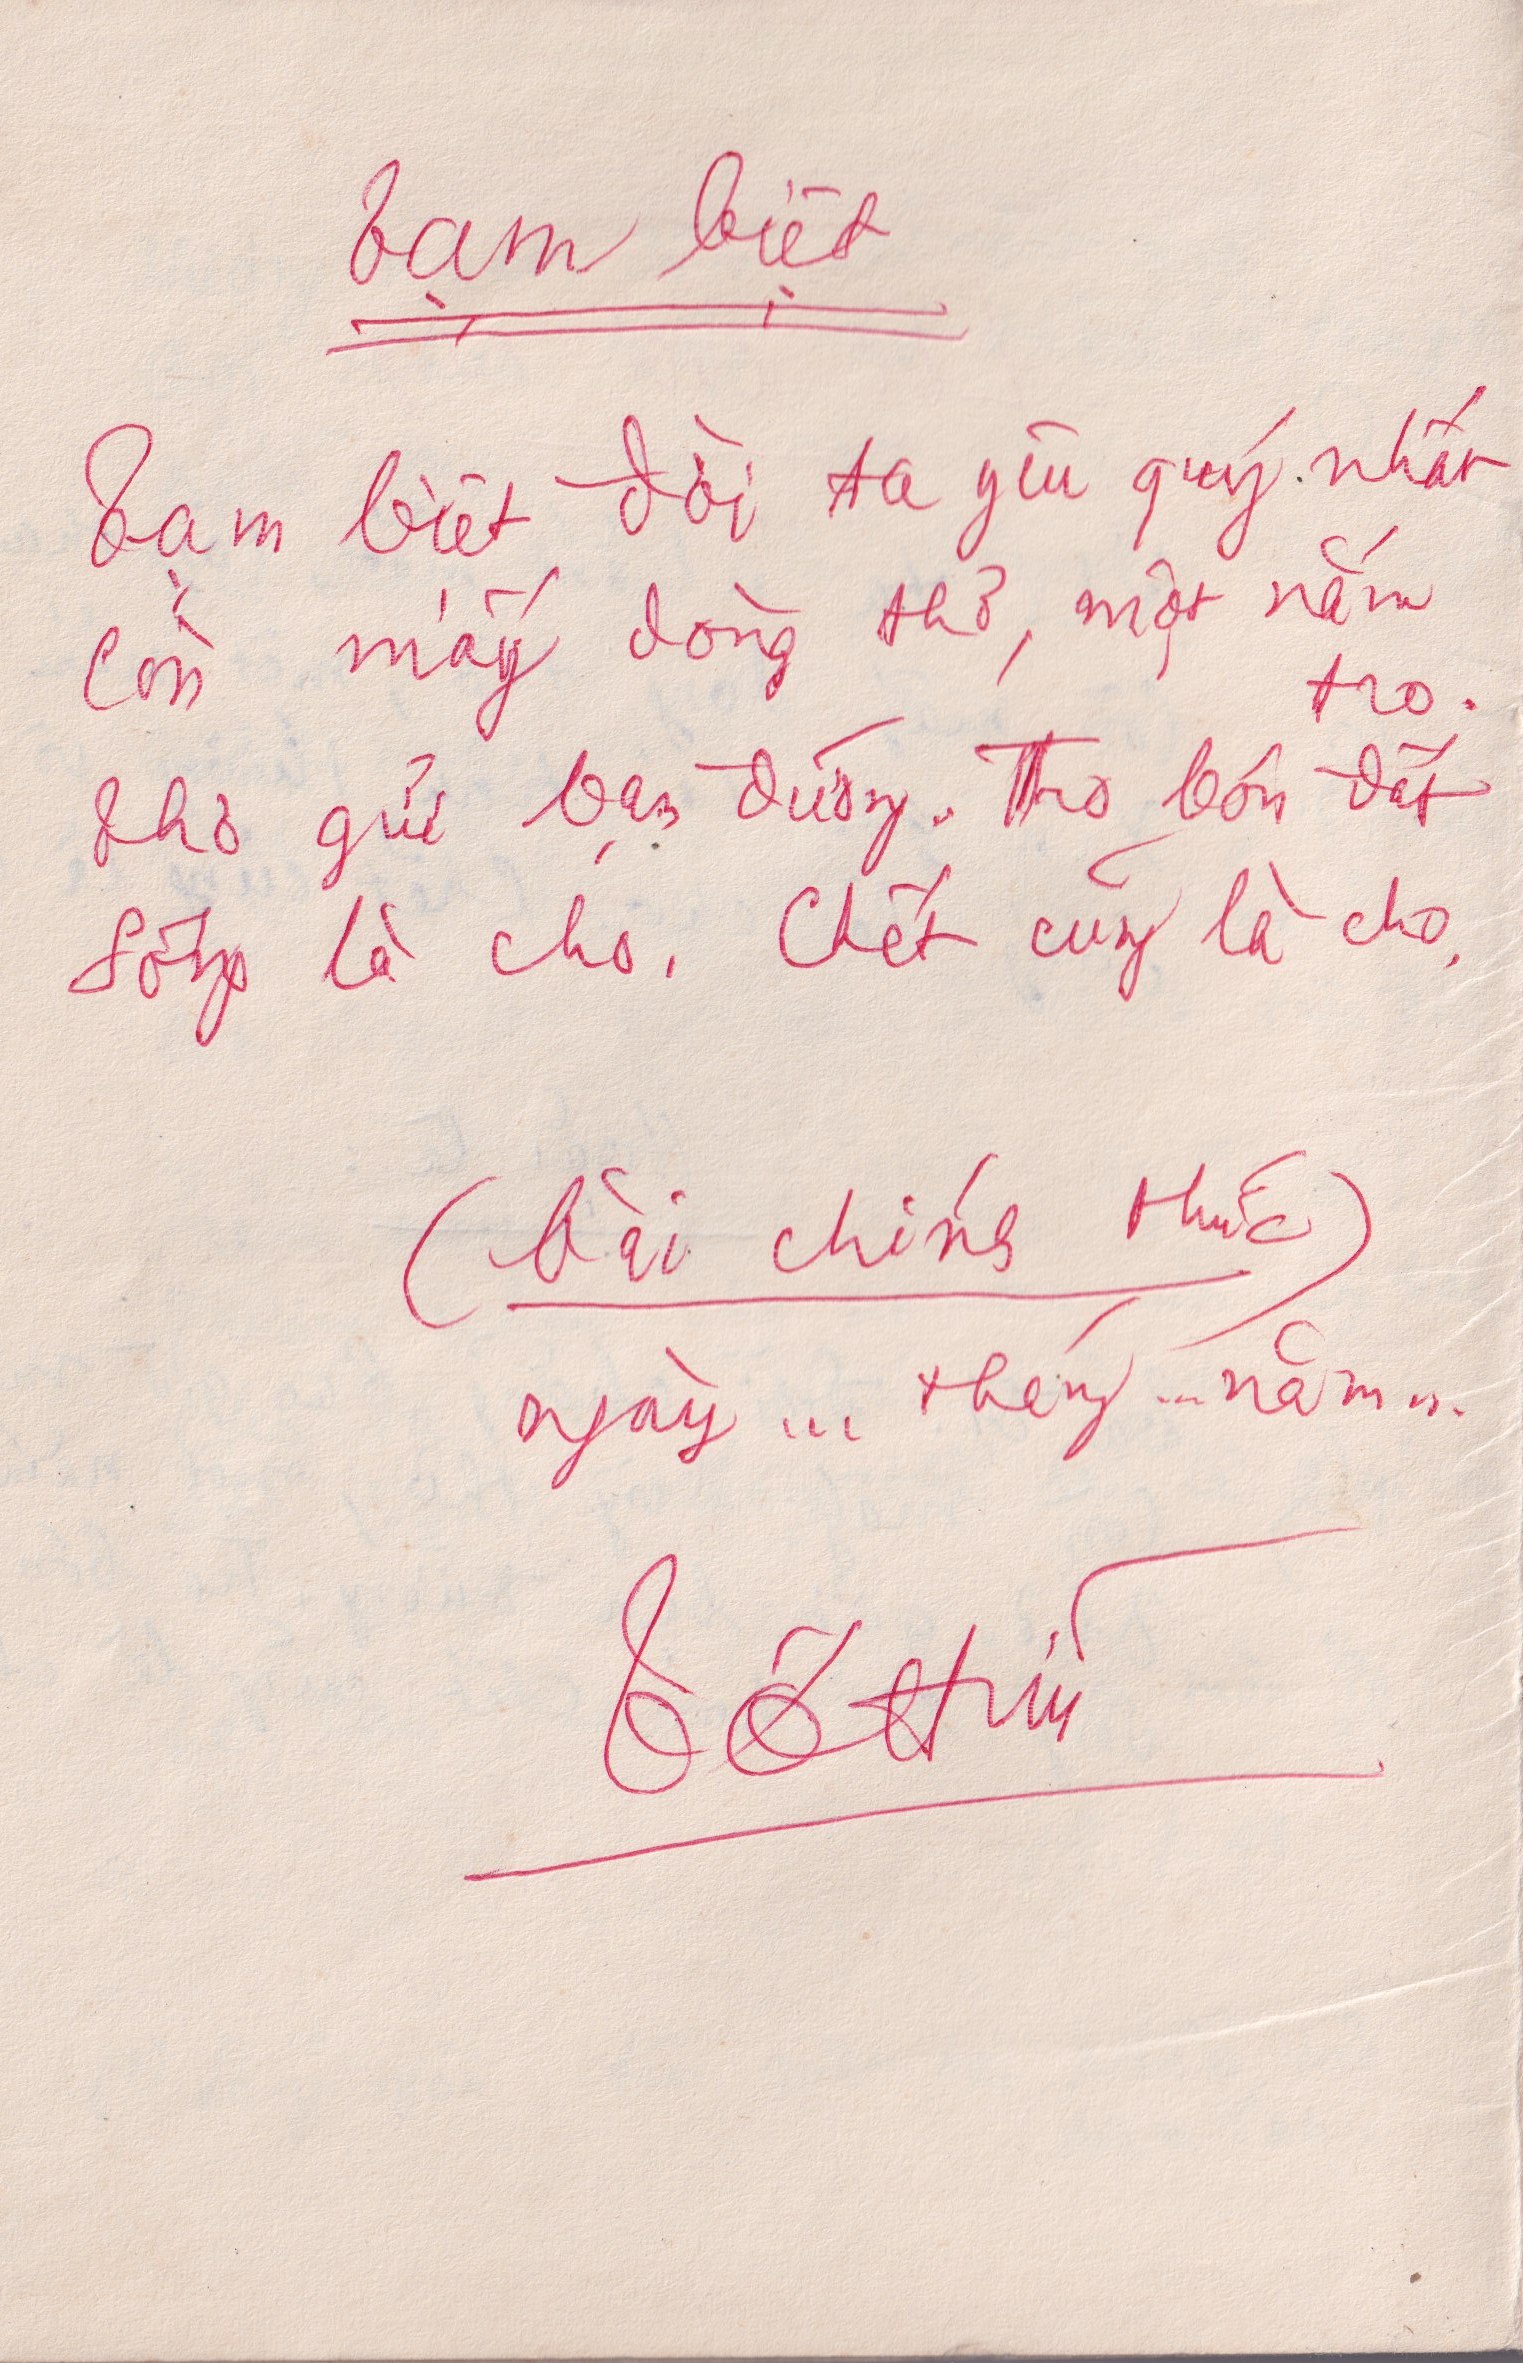 Tạm biệt
Tạm biệt đời ta yêu quý nhất
Còn mấy dòng thơ, một nắm
tro.
Thơ gửi bạn đường. Tro bón đất
Sống là cho. Chết cũng là cho.
(bài chính thức)
ngày ... tháng ... năm ...
Tố Hữu